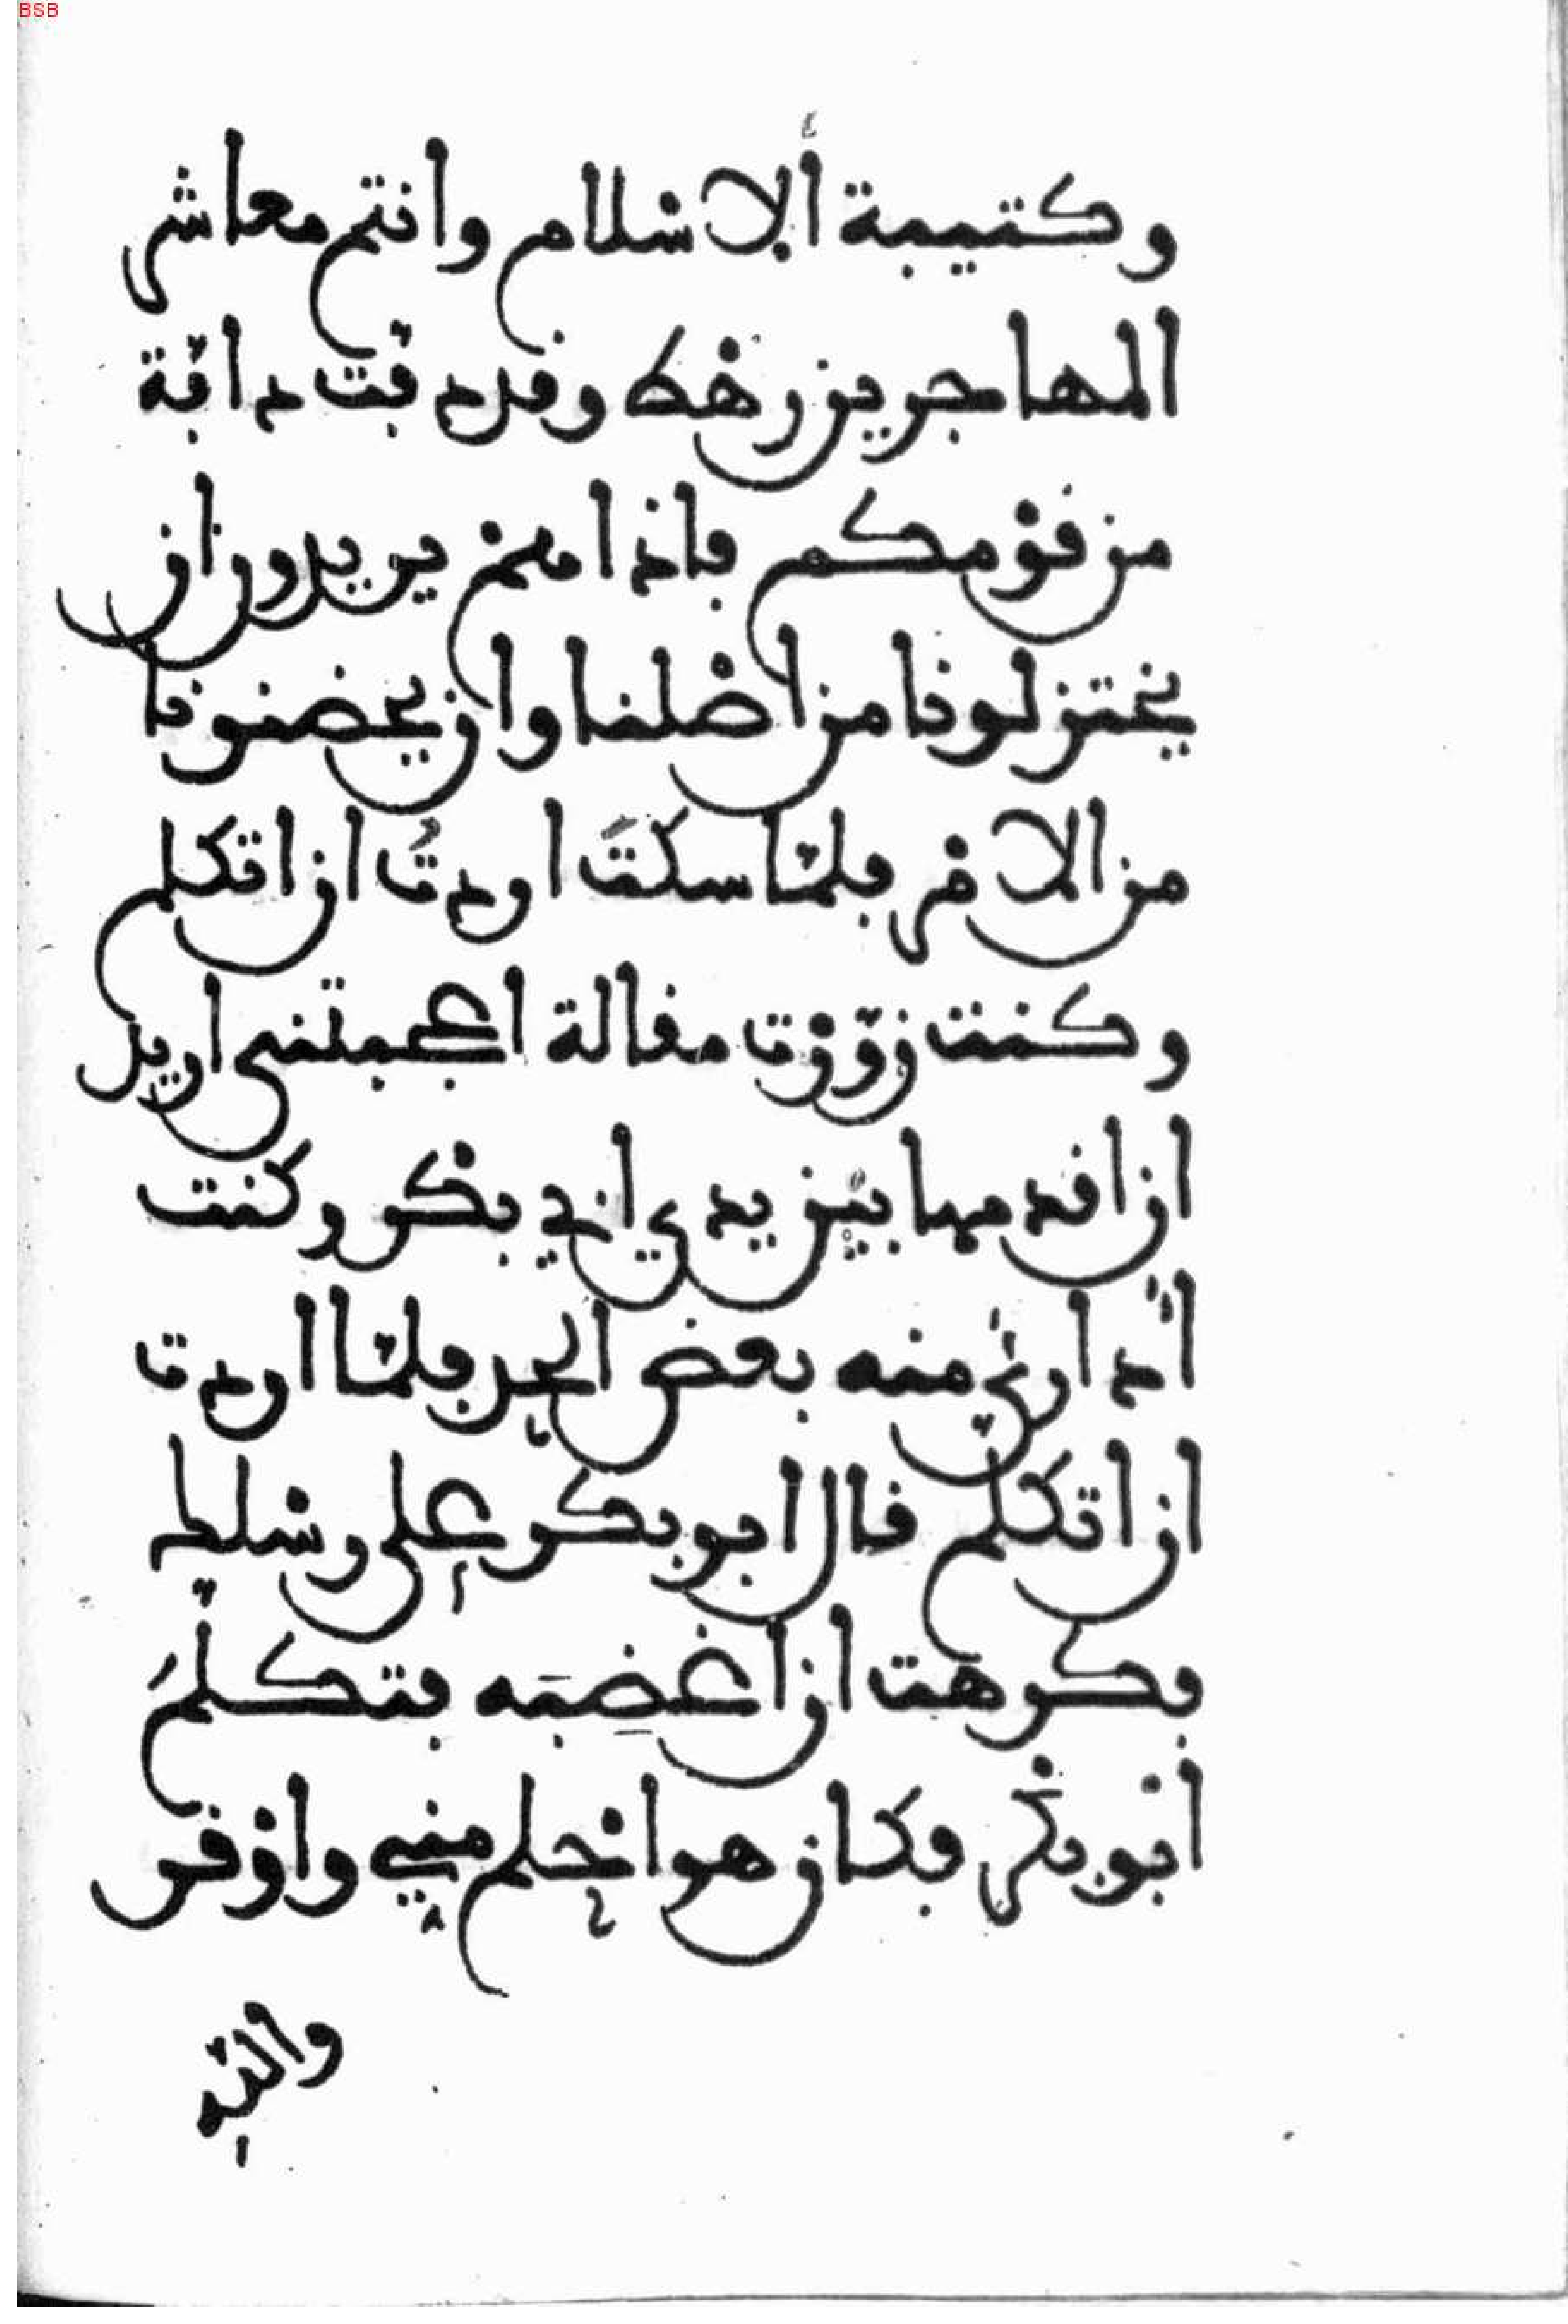 BSB
وكتيبة ألاسلام وانتم معاشر
المهاجرين رهط وقد دفّت دافّة
من قومكم فاذا هم يريدون ان
يختزلونا من اصلنا وان يحضنونا
من الامر فلمّا سكتَ اردتُ ان اتكلم
وكنت زوّرت مقالة اعجبتني اريد
ان اقدمها بين يدي ابي بكر وكنت
اداري منه بعض الحد فلمّا اردت
ان اتكلم قال ابو بكر على رسلك
فكرهت ان اغضِبَه فتكلّمَ
ابو بكر فكان هو احلم مني واوقر
والله